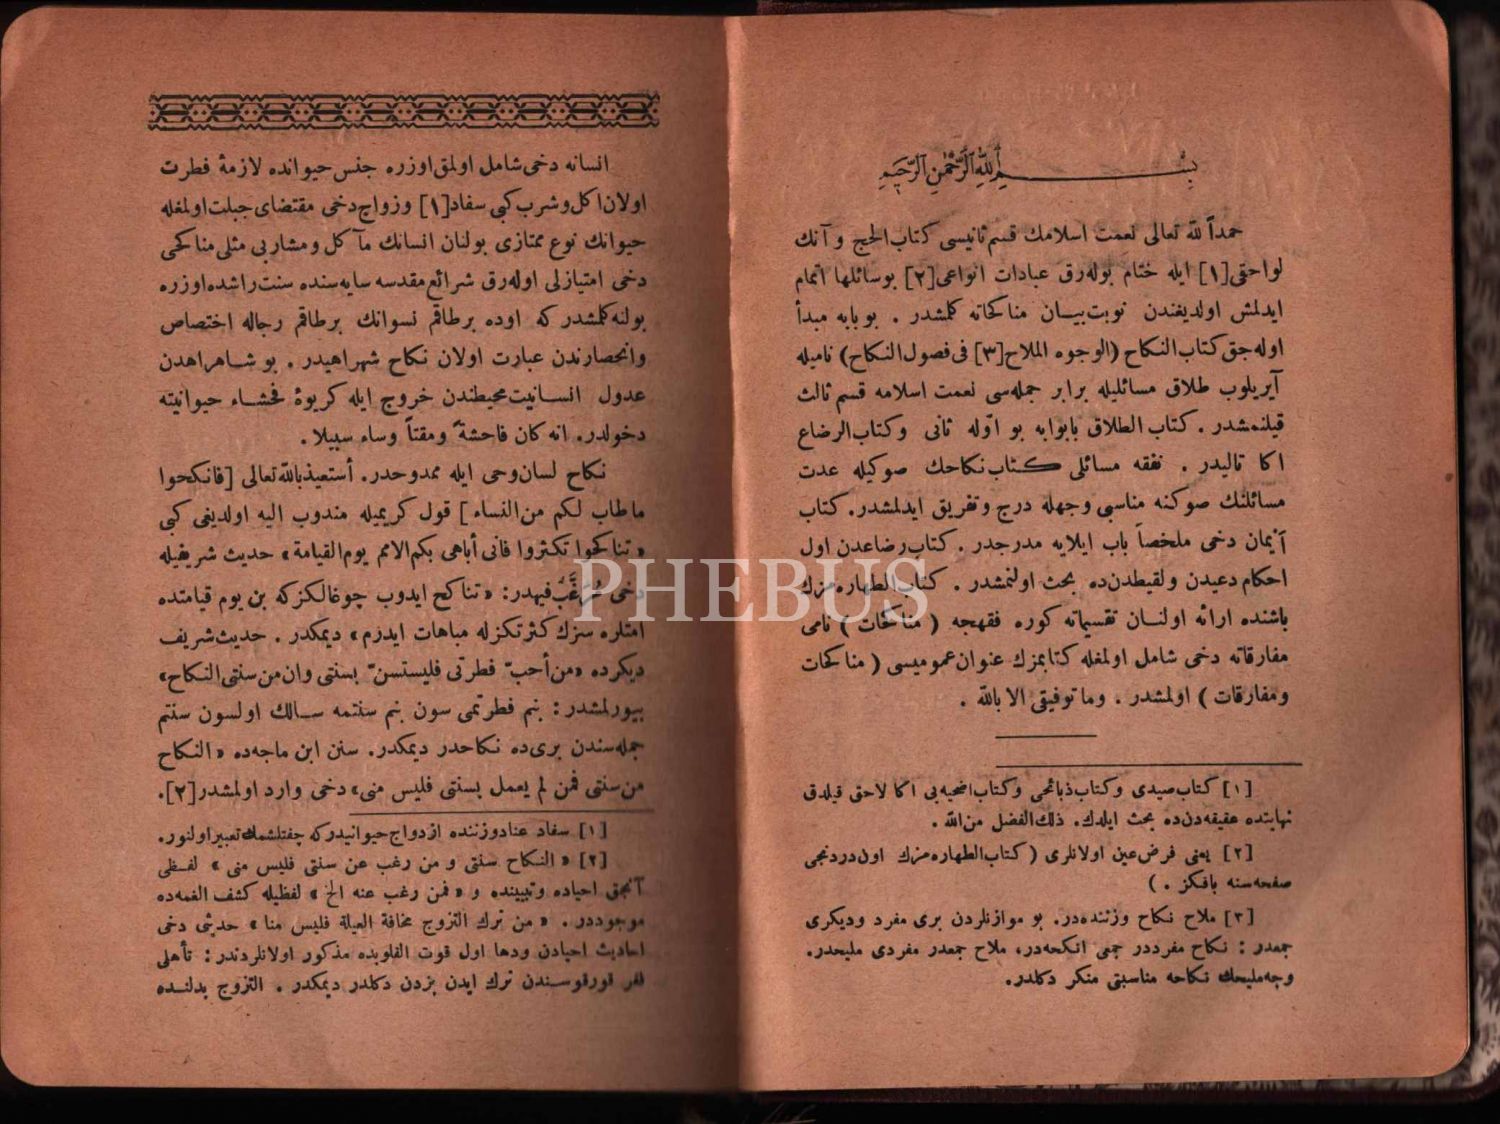 بسم الله الرحمن الرحيم
حمداً لله تعالى نعمت اسلامك قسم ثانیسی كتاب الحج و آنك
لواحقی [١] ایله ختام بوله‌رق عبادات انواعی [٢] بوسائلها اتمام
ایدلمش اولدیغندن نوبت بیـان مناكحاته كلمشدر . بوبابه مبدأ
اوله‌جق كتاب النكاح (الوجوه الملاح [٣] فی فصول النكاح) نامیله
آیریلوب طلاق مسائلیله برابر جمله‌سی نعمت اسلامه قسم ثالث
قیلنمشدر . كتاب الطلاق بابوابه بو اوّله ثانی وكتاب الرضاع
اكا تالیدر . نفقه مسائلی كـتاب نكاحك صوكیله عدت
مسائلنك صوكنه مناسبی وجهله درج وتفریق ایدلمشدر. كتاب
آیمان دخی ملخصاً باب ایلایه مدرجدر . كتاب رضاعدن اول
احكام دعیدن ولقیطدن‌ده بحث اولنمشدر . كتاب الطهاره‌مزك
باشنده ارائه اولنـان تقسیماته كوره فقهجه (مناكحات) نامی
مفارقاته دخی شامل اولمغله كتابمزك عنوان عمومیسی (مناكحات
ومفارقات) اولمشدر . وماتوفیقی الا بالله .
[١] كتاب صیدی وكتاب ذبائحی وكتاب اضحیه‌یی اكا لاحق قیلدق
نهایتده عقیقه‌دن‌ده بحث ایلدك. ذلك الفضل من الله .
[٢] یعنی فرض عین اولانلری (كتاب الطهاره‌مزك اون دردنجی
صفحه‌سنه باقكز . )
[٣] ملاح نكاح وزننده‌در. بو موازنلردن بری مفرد ودیكری
جمعدر : نكاح مفرددر جمعی انكحه‌در، ملاح جمعدر مفردی ملیحدر.
وجه ملیحك نكاحه مناسبتی منكر دكلدر.
انسانه دخی شامل اولمق اوزره جنس حیوانده لازمهٔ فطرت
اولان اكل وشرب كبی سفاد [١] وزواج دخی مقتضای جبلت اولمغله
حیوانك نوع ممتازی بولنان انسانك مآكل ومشاربی مثلی مناكحی
دخی امتیازلی اوله‌رق شرائع مقدسه سایه‌سنده سنت راشده اوزره
بولنه كلمشدر كه اوده برطاقم نسوانك برطاقم رجاله اختصاص
وانحصارندن عبارت اولان نكاح شهراهیدر . بو شـاهراهدن
عدول انسـانیت محیطندن خروج ایله كریوهٔ فحشـاء حیوانیته
دخولدر. انه كان فاحشةً ومقتاً وساء سبیلا .
نكاح لسان وحی ایله ممدوحدر. أستعیذ بالله تعالی [فانكحوا
ماطاب لكم من النساء] قول كریمیله مندوب الیه اولدیغی كبی
«تناكحوا تكثروا فانی أباهی بكم الامم یوم القیامة» حدیث شریفیله
دخی مُرَغَّبٌ فیهدر: «تناكح ایدوب چوغالكزكه بن یوم قیامتده
امتلره سزك كثرتكزله مباهات ایدرم» دیمكدر . حدیث شریف
دیكرده «من أحبّ فطرتی فلیستسنّ بسنتی وان من سنتی النكاح»
بیورلمشدر : بنم فطرتمی سون بنم سنتمه سـالك اولسون سنتم
جمله‌سندن بری‌ده نكاحدر دیمكدر. سنن ابن ماجه‌ده «النكاح
من سنتی فمن لم یعمل بسنتی فلیس منی» دخی وارد اولمشدر [٢].
[١] سفاد عناد وزننده ازدواج حیوانیدركه چفتلشمك تعبیر اولنور.
[٢] «النكاح سنتی و من رغب عن سنتی فلیس منی» لفـظی
آنجق احیاده وتبیینده و «فمن رغب عنه الخ» لفظیله كشف الغمه‌ده
موجوددر . «من ترك التزوج مخافة العیلة فلیس منا» حدیثی دخی
احادیث احیادن ودها اول قوت القلوبده مذكور اولانلردندر : تأهلی
فقر قورقوسندن ترك ایدن بزدن دكلدر دیمكدر . التزوج بدلنـده
PHEBUS